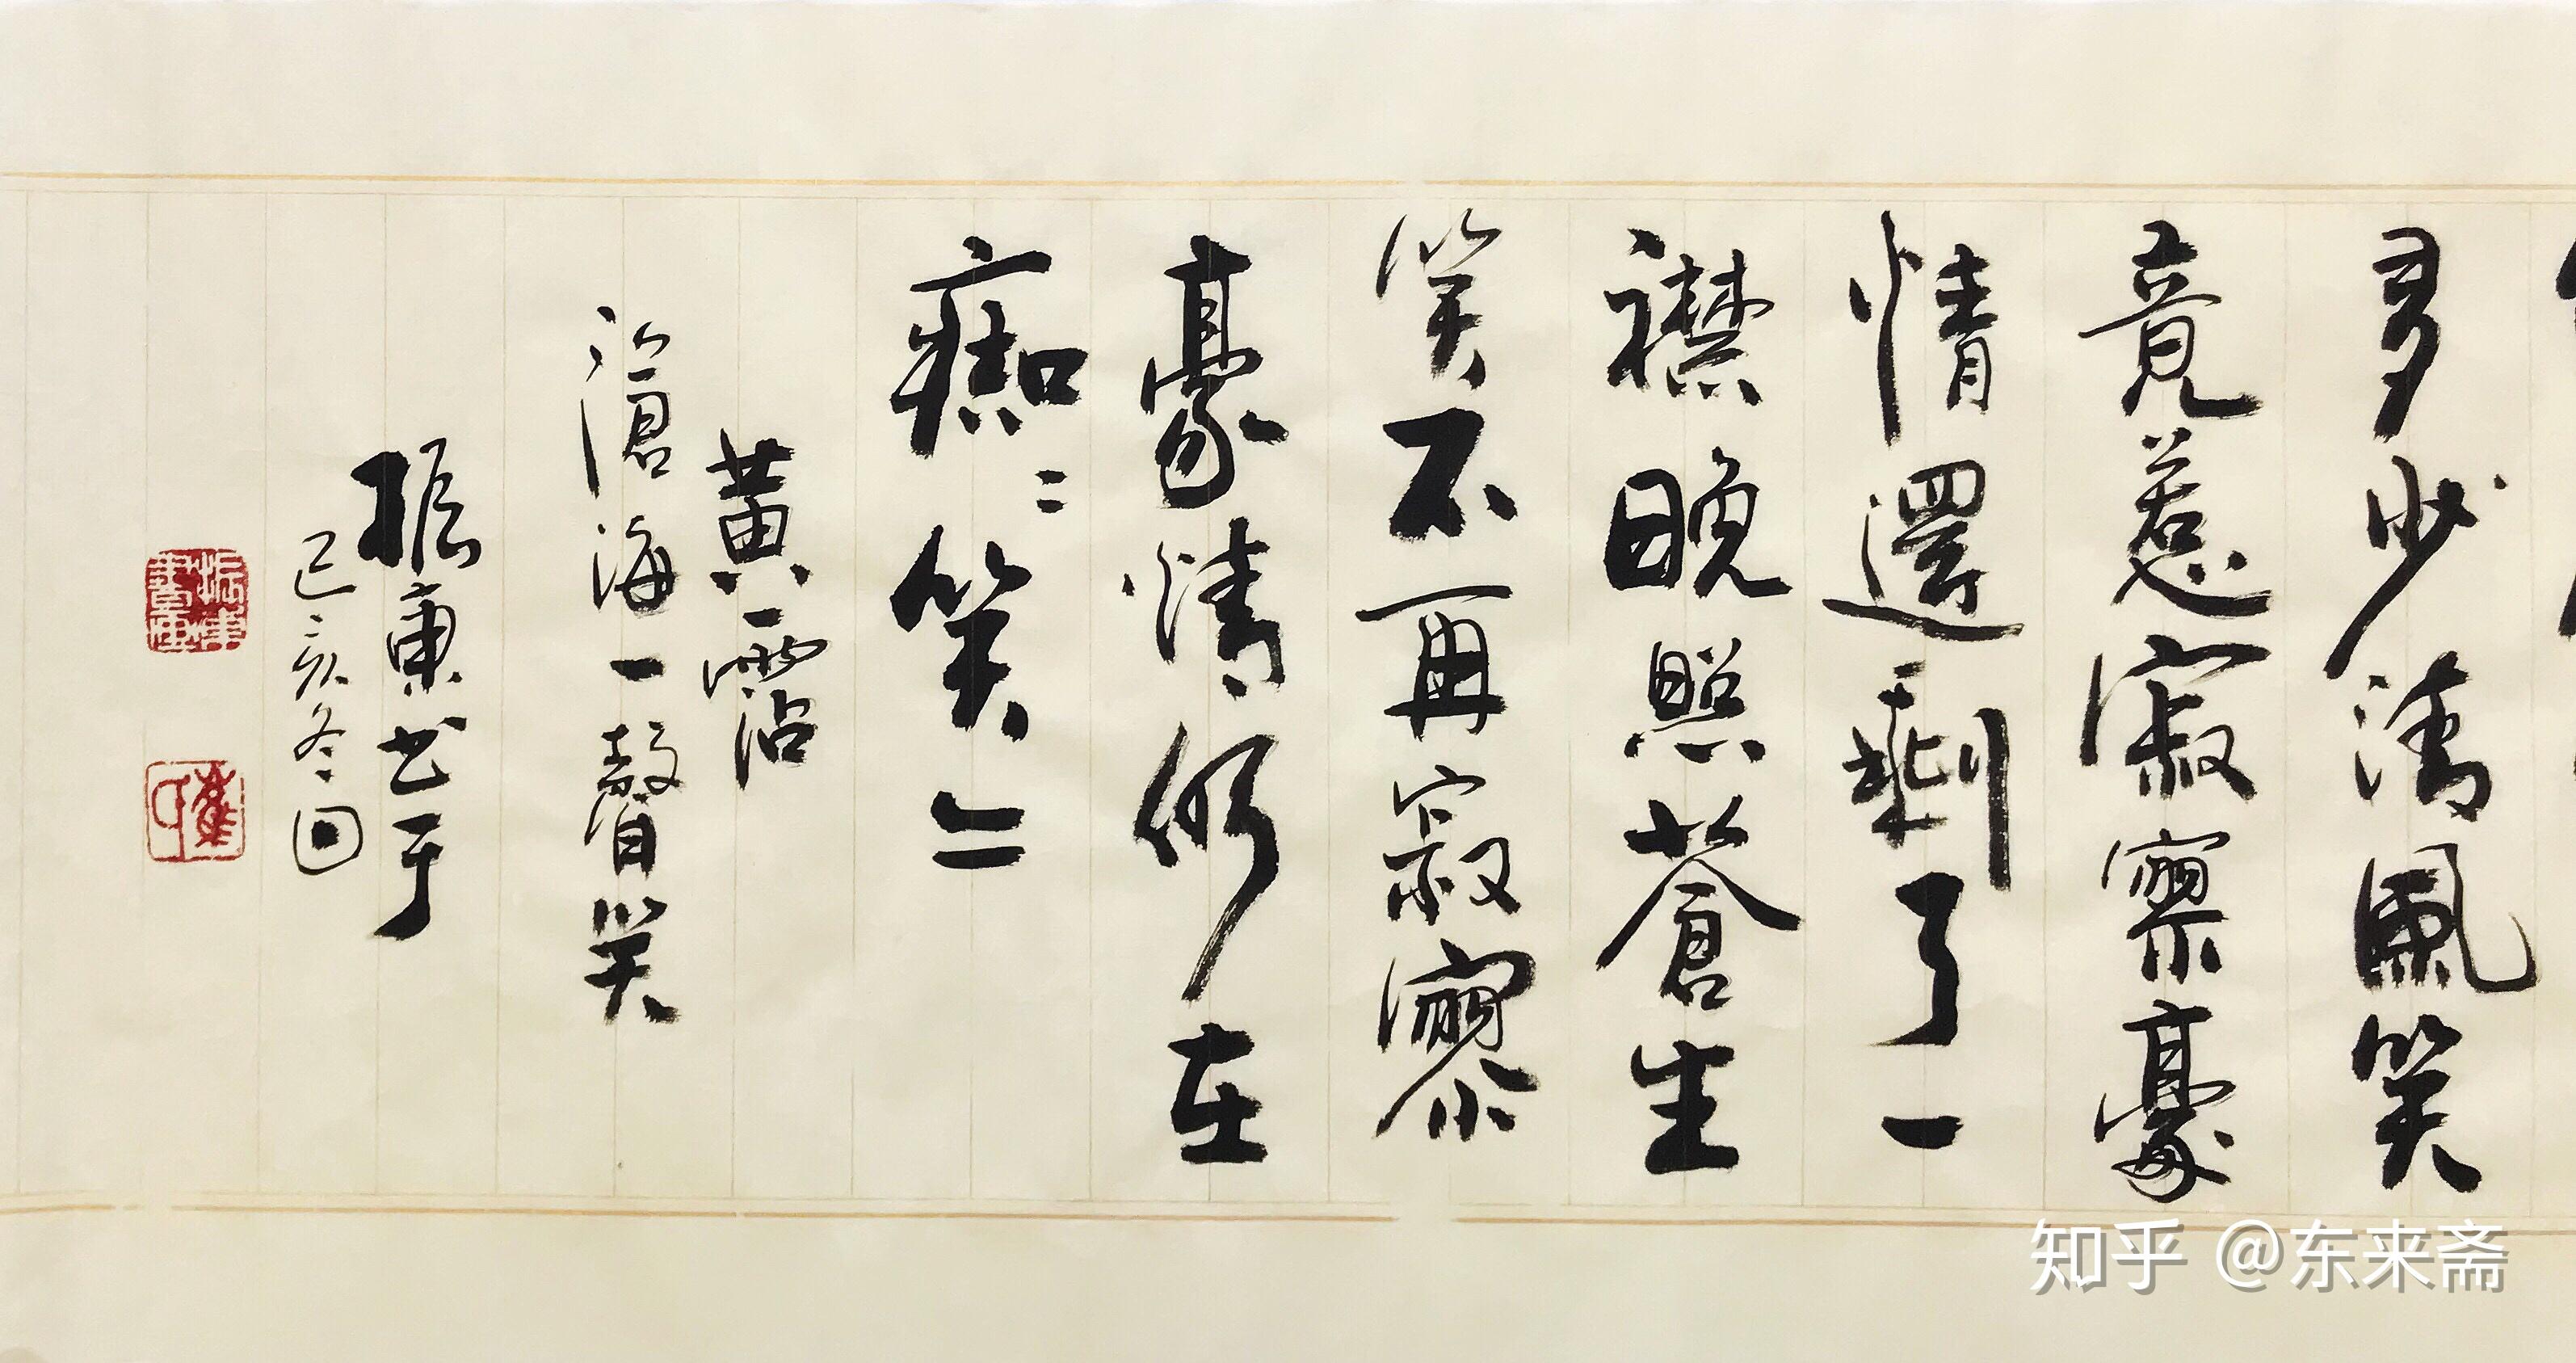 多少清風笑
竟惹寂寥豪
情還剩了一
襟晚照蒼生
笑不再寂寥
豪情仍在
痴〻笑〻
黃霑
滄海一聲笑
振東书于
己亥冬日
知乎 @东来斋